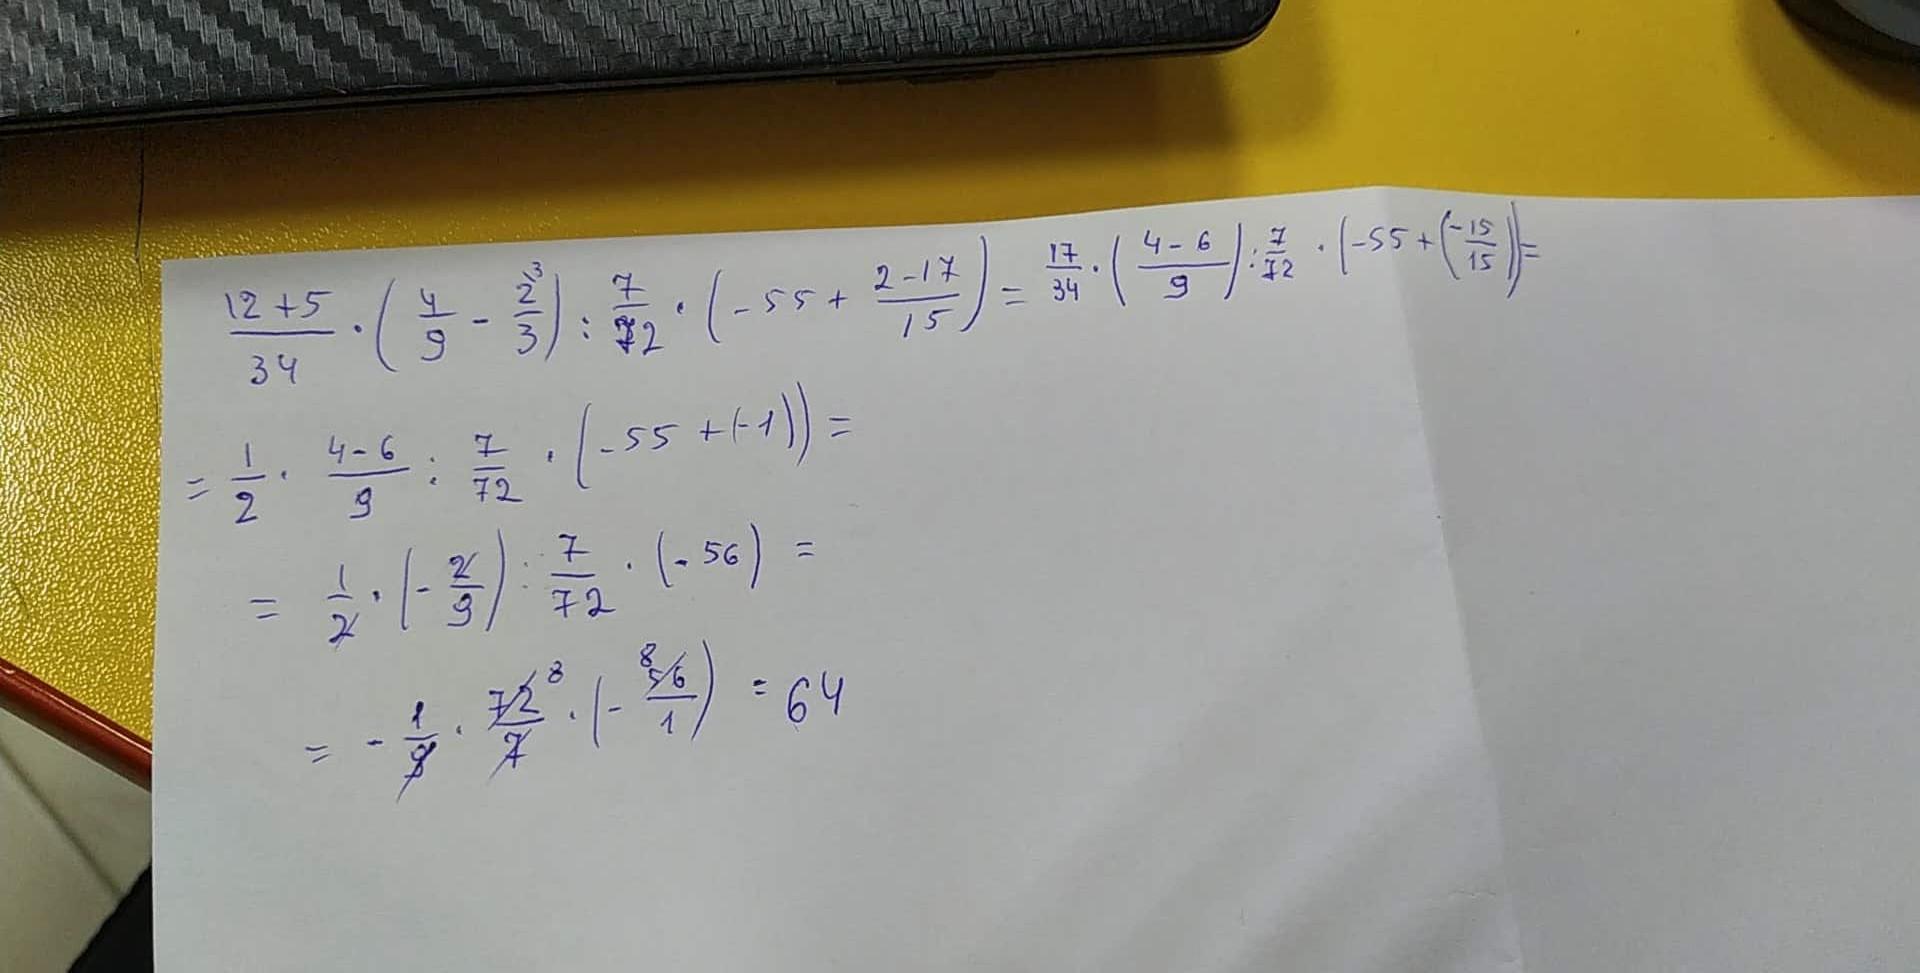 (12+5)/34 · (4/9 - 2³/3) : 7/72 · (-55 + (2-17)/15) = 17/34 · ((4-6)/9) : 7/72 · (-55 + (-15/15)) =
= 1/2 · (4-6)/9 : 7/72 · (-55 + (-1)) =
= 1/2 · (-2/9) : 7/72 · (-56) =
= - 1/9 · 72 8/7 · (- 8 56/1) = 64